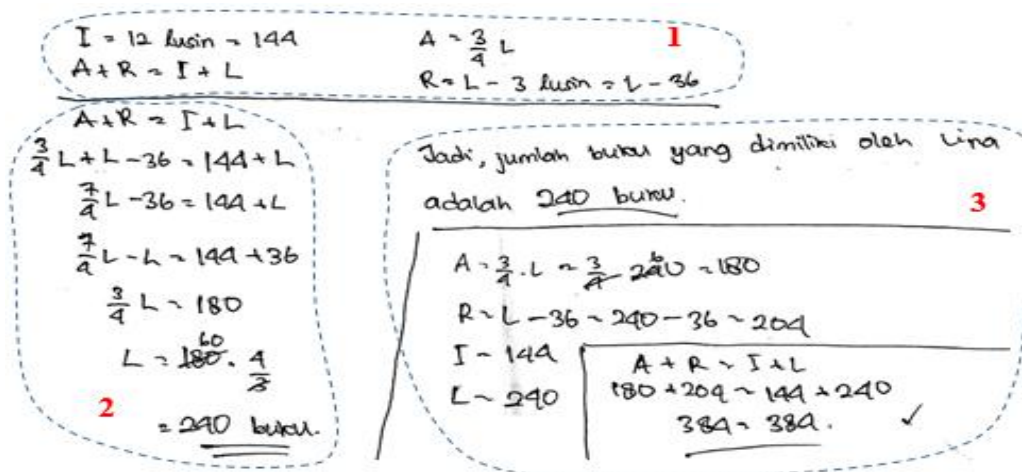 I = 12 lusin = 144
A + R = I + L
A = 3/4 L
R = L - 3 lusin = L - 36
1
A + R = I + L
3/4 L + L - 36 = 144 + L
7/4 L - 36 = 144 + L
7/4 L - L = 144 + 36
3/4 L = 180
60
L = 180 . 4/3
= 240 buku.
2
Jadi, jumlah buku yang dimiliki oleh Lina
adalah 240 buku.
3
A = 3/4 . L = 3/4 240 = 180
R = L - 36 = 240 - 36 = 204
I = 144
L = 240
A + R = I + L
180 + 204 = 144 + 240
384 = 384. ✓